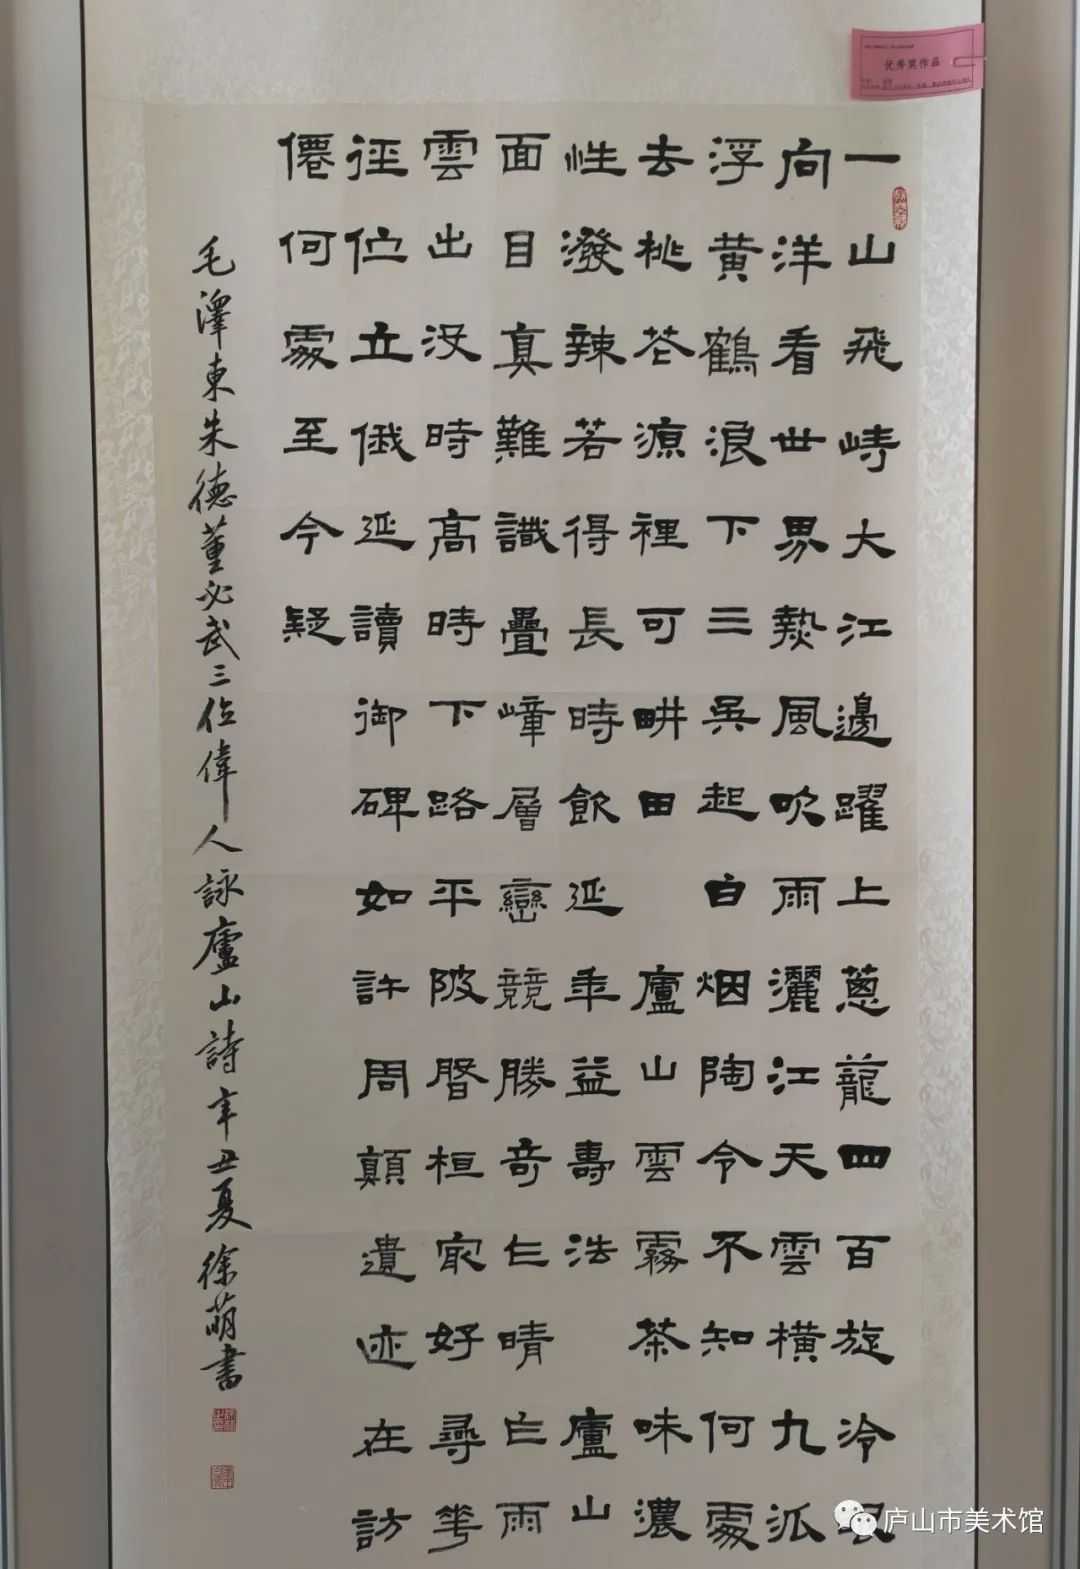 优秀奖作品
一山飛峙大江邊躍上蔥蘢四百旋冷眼
向洋看世界熱風吹雨灑江天雲橫九派
浮黄鶴浪下三吳起白烟陶令不知何處
去桃花源裡可畊田 廬山雲霧茶味濃
性潑辣若得長時飲延年益壽法 廬山
面目真難識疊嶂層巒競勝奇乍晴乍雨
雲出没時高時下路平陂盤桓最好尋花
徑佇立俄延讀御碑如許周顛遺迹在訪
僊何處至今疑
毛澤東朱德董必武三位偉人詠廬山詩辛丑夏徐萌書
庐山市美术馆